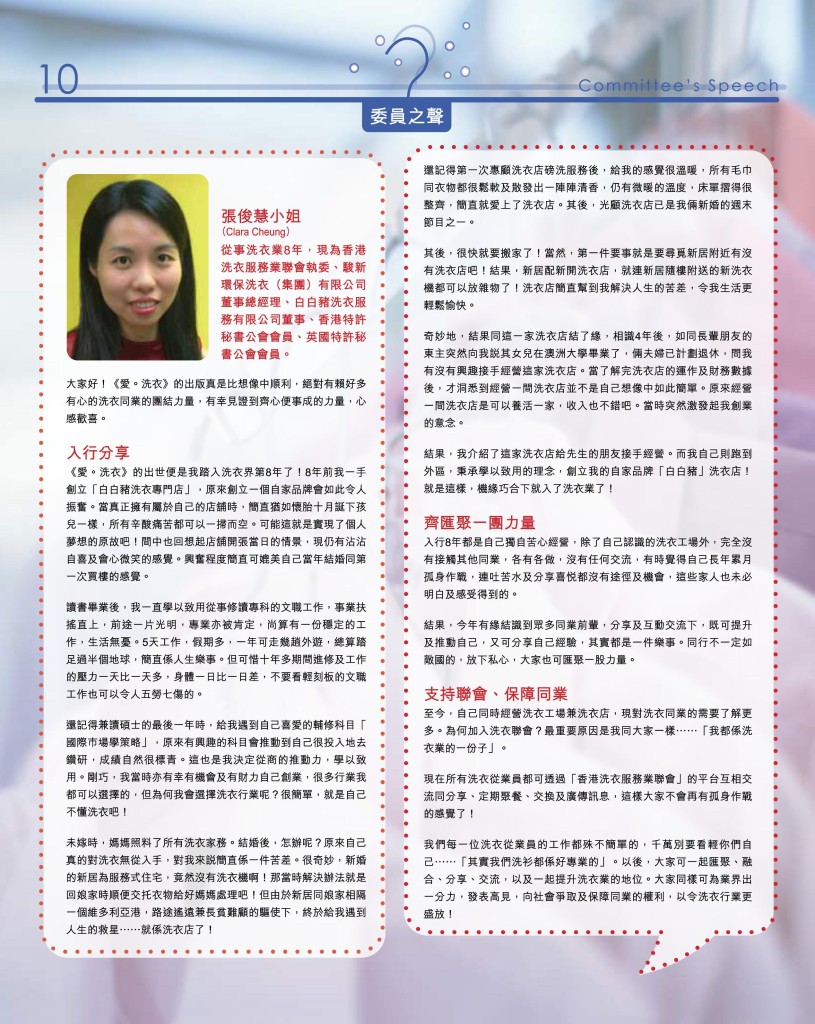 10
Committee's Speech
委員之聲
張俊慧小姐
（Clara Cheung）
從事洗衣業8年，現為香港
洗衣服務業聯會執委、駿新
環保洗衣（集團）有限公司
董事總經理、白白豬洗衣服
務有限公司董事、香港特許
秘書公會會員、英國特許秘
書公會會員。
大家好！《愛。洗衣》的出版真是比想像中順利，絕對有賴好多
有心的洗衣同業的團結力量，有幸見證到齊心便事成的力量，心
感歡喜。
入行分享
《愛。洗衣》的出世便是我踏入洗衣界第8年了！8年前我一手
創立「白白豬洗衣專門店」，原來創立一個自家品牌會如此令人
振奮。當真正擁有屬於自己的店舖時，簡直猶如懷胎十月誕下孩
兒一樣，所有辛酸痛苦都可以一掃而空。可能這就是實現了個人
夢想的原故吧！間中也回想起店舖開張當日的情景，現仍有沾沾
自喜及會心微笑的感覺。興奮程度簡直可媲美自己當年結婚同第
一次買樓的感覺。
讀書畢業後，我一直學以致用從事修讀專科的文職工作，事業扶
搖直上，前途一片光明，專業亦被肯定，尚算有一份穩定的工
作，生活無憂。5天工作，假期多，一年可走幾趟外遊，總算踏
足過半個地球，簡直係人生樂事。但可惜十年多期間進修及工作
的壓力一天比一天多，身體一日比一日差，不要看輕刻板的文職
工作也可以令人五勞七傷的。
還記得兼讀碩士的最後一年時，給我遇到自己喜愛的輔修科目「
國際市場學策略」，原來有興趣的科目會推動到自己很投入地去
鑽研，成績自然很標青。這也是我決定從商的推動力，學以致
用。剛巧，我當時亦有幸有機會及有財力自己創業，很多行業我
都可以選擇的，但為何我會選擇洗衣行業呢？很簡單，就是自己
不懂洗衣吧！
未嫁時，媽媽照料了所有洗衣家務。結婚後，怎辦呢？原來自己
真的對洗衣無從入手，對我來說簡直係一件苦差。很奇妙，新婚
的新居為服務式住宅，竟然沒有洗衣機啊！那當時解決辦法就是
回娘家時順便交托衣物給好媽媽處理吧！但由於新居同娘家相隔
一個維多利亞港，路途遙遠兼長貧難顧的驅使下，終於給我遇到
人生的救星……就係洗衣店了！
還記得第一次惠顧洗衣店磅洗服務後，給我的感覺很溫暖，所有毛巾
同衣物都很鬆軟及散發出一陣陣清香，仍有微暖的溫度，床單摺得很
整齊，簡直就愛上了洗衣店。其後，光顧洗衣店已是我倆新婚的週末
節目之一。
其後，很快就要搬家了！當然，第一件要事就是要尋覓新居附近有沒
有洗衣店吧！結果，新居配新開洗衣店，就連新居隨樓附送的新洗衣
機都可以放雜物了！洗衣店簡直幫到我解決人生的苦差，令我生活更
輕鬆愉快。
奇妙地，結果同這一家洗衣店結了緣，相識4年後，如同長輩朋友的
東主突然向我説其女兒在澳洲大學畢業了，倆夫婦已計劃退休，問我
有沒有興趣接手經營這家洗衣店。當了解完洗衣店的運作及財務數據
後，才洞悉到經營一間洗衣店並不是自己想像中如此簡單。原來經營
一間洗衣店是可以養活一家，收入也不錯吧。當時突然激發起我創業
的意念。
結果，我介紹了這家洗衣店給先生的朋友接手經營。而我自己則跑到
外區，秉承學以致用的理念，創立我的自家品牌「白白豬」洗衣店！
就是這樣，機緣巧合下就入了洗衣業了！
齊匯聚一團力量
入行8年都是自己獨自苦心經營，除了自己認識的洗衣工場外，完全沒
有接觸其他同業，各有各做，沒有任何交流，有時覺得自己長年累月
孤身作戰，連吐苦水及分享喜悅都沒有途徑及機會，這些家人也未必
明白及感受得到的。
結果，今年有緣結識到眾多同業前輩，分享及互動交流下，既可提升
及推動自己，又可分享自己經驗，其實都是一件樂事。同行不一定如
敵國的，放下私心，大家也可匯聚一股力量。
支持聯會、保障同業
至今，自己同時經營洗衣工場兼洗衣店，現對洗衣同業的需要了解更
多。為何加入洗衣聯會？最重要原因是我同大家一樣……「我都係洗
衣業的一份子」。
現在所有洗衣從業員都可透過「香港洗衣服務業聯會」的平台互相交
流同分享、定期聚餐、交換及廣傳訊息，這樣大家不會再有孤身作戰
的感覺了！
我們每一位洗衣從業員的工作都殊不簡單的，千萬別要看輕你們自
己……「其實我們洗衫都係好專業的」。以後，大家可一起匯聚、融
合、分享、交流，以及一起提升洗衣業的地位。大家同樣可為業界出
一分力，發表高見，向社會爭取及保障同業的權利，以令洗衣行業更
盛放！